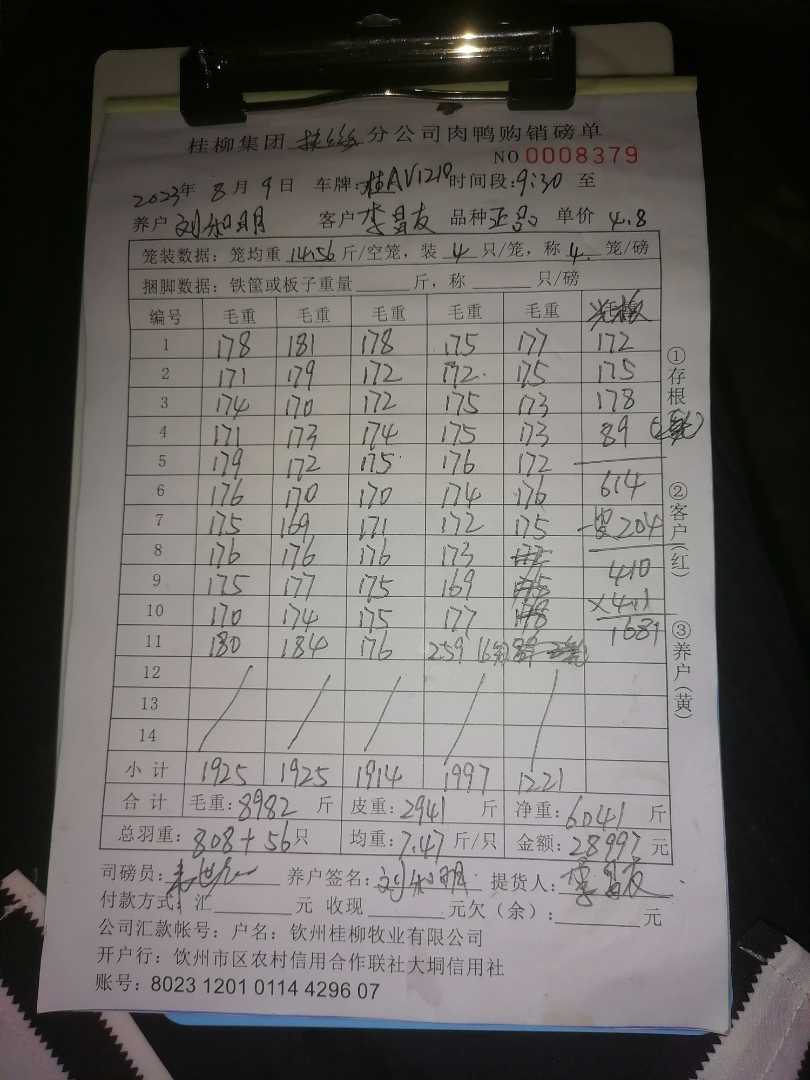 桂柳集团 分公司肉鸭购销磅单
NO 0008379
2023年 8月 9日 车牌:桂AV1210 时间段:9:30 至
养户 刘和明 客户 李昌友 品种 正品 单价 4.8
笼装数据:笼均重 14.56 斤/空笼,装 4 只/笼,称 4. 笼/磅
捆脚数据:铁筐或板子重量 斤,称 只/磅
编号 毛重 毛重 毛重 毛重 毛重
1 178 181 178 175 177 172
2 171 179 172 172 175 175
3 174 170 172 175 173 178
4 171 173 174 175 173 89
5 179 172 175 176 172
6 176 170 170 174 176 614
7 175 169 171 172 175 204
8 176 176 176 173 410
9 175 177 175 169
10 170 174 175 177 1681
11 180 184 176 259
12
13
14
小计 1925 1925 1914 1997 1221
合计 毛重:8982 斤 皮重:2941 斤 净重:6041 斤
总羽重:808+56只 均重:7.47 斤/只 金额:28997 元
司磅员: 养户签名:刘和明 提货人:李昌友
付款方式:汇 元 收现 元欠(余): 元
公司汇款帐号:户名:钦州桂柳牧业有限公司
开户行:钦州市区农村信用合作联社大垌信用社
账号:8023 1201 0114 4296 07
①存根 ②客户(红) ③养户(黄)